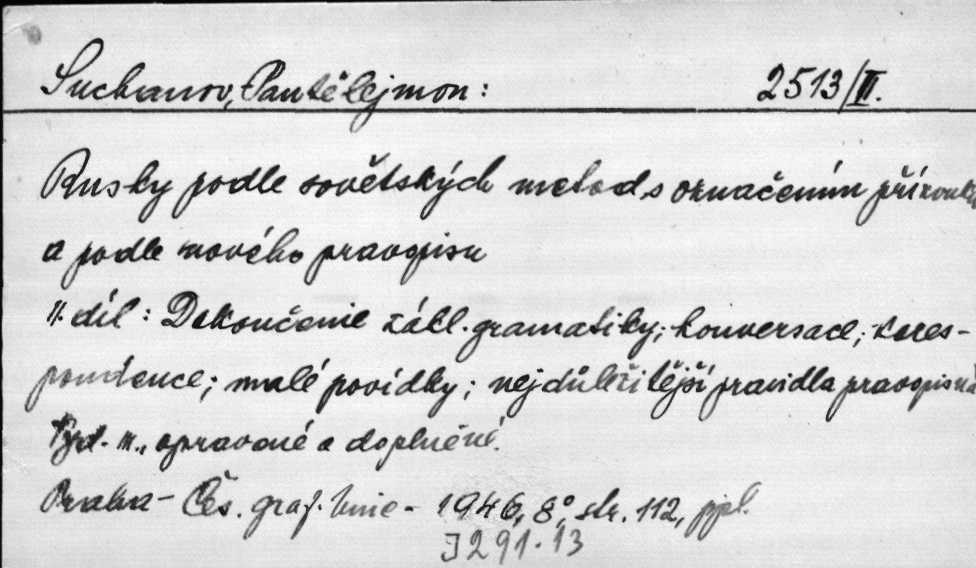 Suchanov, Pantělejmon: 2513/II.
Rusky podle sovětských metod s označením přízvuku
a podle nového pravopisu
II. díl: Dokončenie zákl. gramatiky; konversace; kores-
pondence; malé povídky; nejdůležitější pravidla pravopisná
Vyd. II., opravené a doplněné.
Praha - Čes. graf. Unie - 1946, 8°, str. 112, ppl.
J 291.13